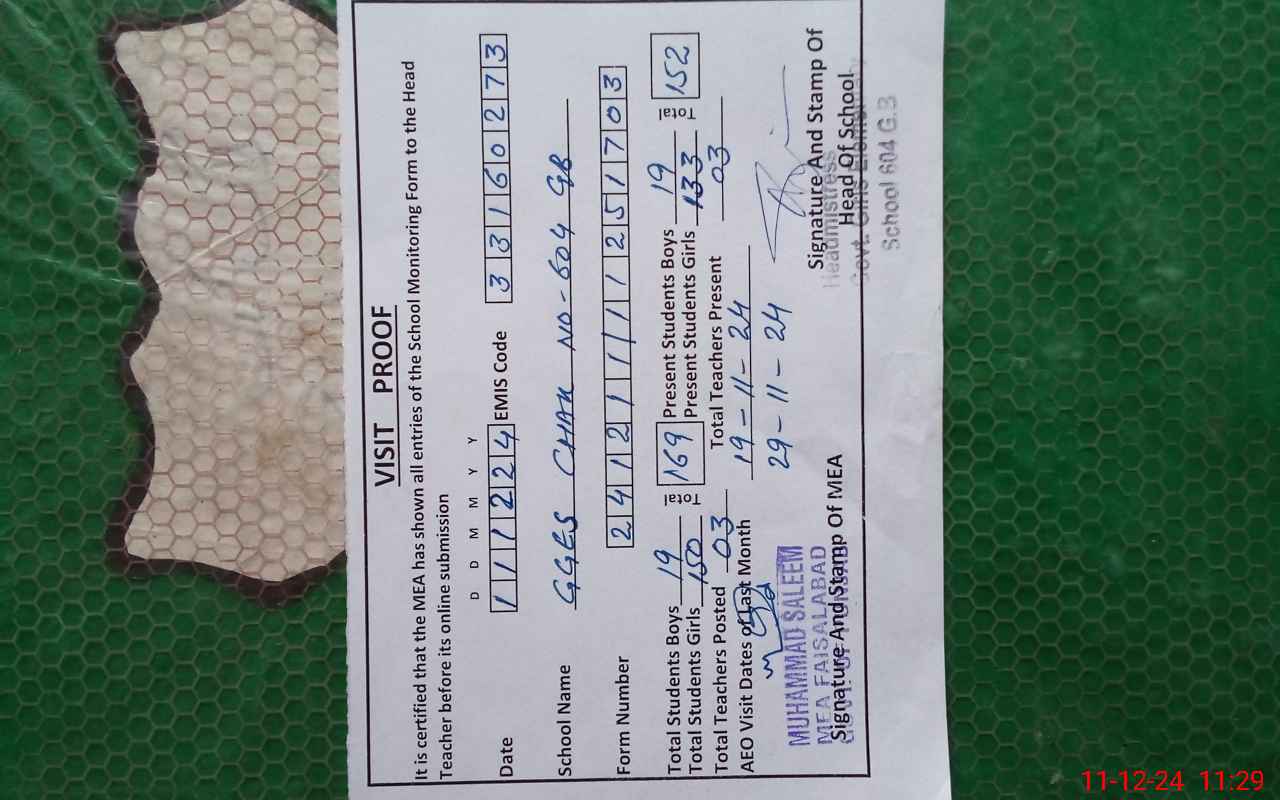 VISIT PROOF
It is certified that the MEA has shown all entries of the School Monitoring Form to the Head
Teacher before its online submission
D D M M Y Y
Date 1 1 1 2 2 4 EMIS Code 3 3 1 6 0 2 7 3
School Name GGES CHAK NO-604 GB
Form Number 2 4 1 2 1 1 1 1 2 5 1 7 0 3
Total Students Boys 19 Total 169 Present Students Boys 19 Total 152
Total Students Girls 150 Present Students Girls 133
Total Teachers Posted 03 Total Teachers Present 03
AEO Visit Dates of Last Month 19-11-24
29-11-24
MUHAMMAD SALEEM
MEA FAISALABAD
Signature And Stamp Of MEA
Signature And Stamp Of
Head Of School
Headmistress
Govt. Girls Elementary
School 604 G.B
11-12-24 11:29